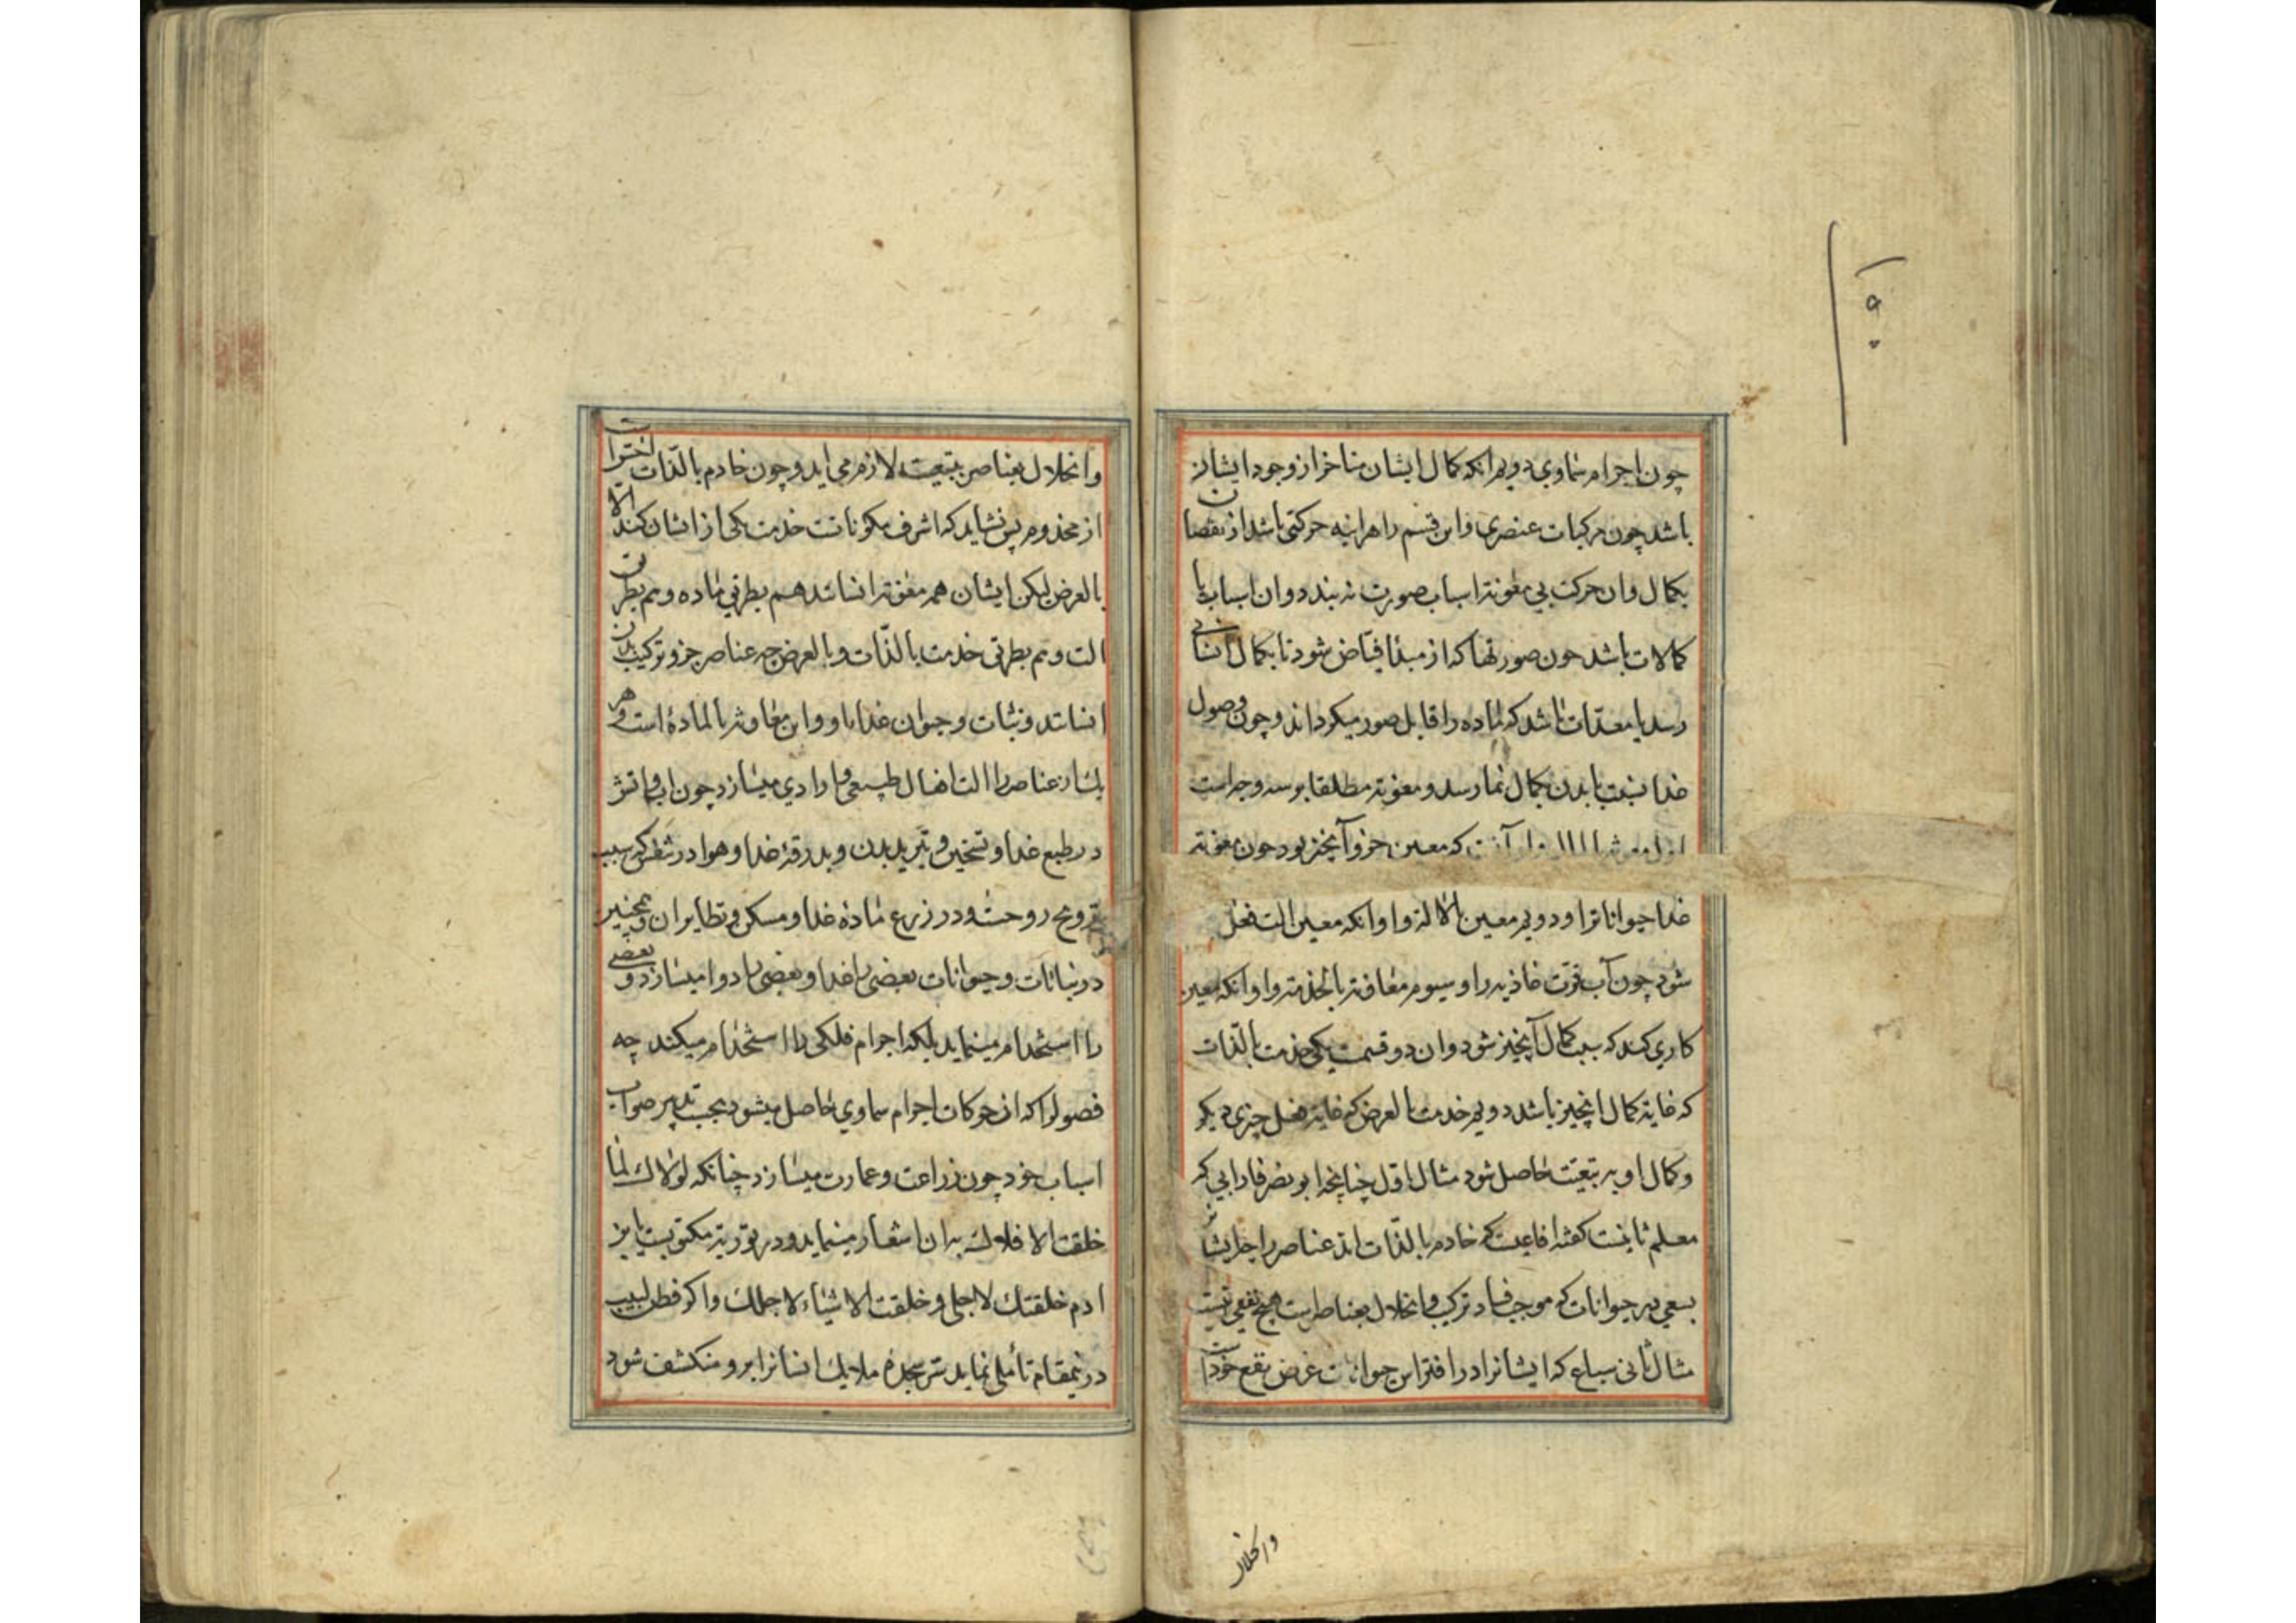 چون اجرام سماوی دویم انکه کمال ایشان متاخر از وجود ایشان
باشد چون مرکبات عنصری و این قسم را هراینه حرکتی باشد از نقصان
بکمال و ان حرکت بی معونة اسباب صورت نه بندد و ان اسباب یا
کمالات باشد چون صورتها که از مبدا فیاض شود تا بکمال انسانی
رسد یا معدّات باشد که ماده را قابل صور میکرداند و چون وصول
غذا نسبت با بدن بکمال نما رسد و معونة مطلقا بر سه وجه است
که معین جزو آنچیز بود چون معونة
غذا حیوانات را و دویم معین بالالة و او انکه معین الت فعل
شود چون آب قوّت غاذیه را و سیوم معاونة بالخدمة و او انکه معین
کاری کند که سبب کمال آنچیز شود و ان دو قسمت یکی خدمت بالذّات
که غایة کمال انچیز باشد دویم خدمت بالعرض که غایة فعل چیزی دیکر
و کمال او به تبعیّت حاصل شود مثال اوّل چنانچه ابو نصر فارابی که
معلم ثانیست کفته افاعیت که خادم بالذّات اند عناصر را چه ایشان
بسعی در حیوانات که موجب فساد ترکیب و انحلال بعناصر است هیچ نفعی نیست
مثال ثانی سباع که ایشانرا در افتراس حیوانات غرض نفع خود است
و انحلال
وانحلال بعناصر بتبعیت لازم می اید و چون خادم بالذّات اخسّ است
از مخدوم پس نشاید که اشرف مکوناتست خدمت یکی از ایشان کند الا
بالعرض لیکن ایشان همه معونة انسانند هم بطریق ماده و هم بطریق
الت و هم بطریق خدمت بالذّات و بالعرض چه عناصر جزو ترکیب بدن
انسانند و نبات و حیوان غذاء او و این معاونة بالمادّه است و هر
یک از عناصر را الت افعال طبیعی و ارادی میسازد چون اب و اتش
در طبع غذا و تسخین و تبرید بدن و بدرقهٔ غذا و هوا در تنفّس که سبب
ترویح روحست و در زرع مادهٔ غذا و مسکن و نظایر ان و همچنین
در نباتات و حیوانات بعضی را غذا و بعضی را دوا میسازد و بعضی
را استخدام مینماید بلکه اجرام فلکی را استخدام میکند چه
فصول را که از حرکات اجرام سماوی حاصل میشود بحسب تدبیر صواب
اسباب خود چون زراعت و عمارت میسازد چنانکه لولاک لما
خلقت الافلاک بران اشعار مینماید و در توریة مکتوبست یا بن
ادم خلقتک لاجلی و خلقت الاشیاء لاجلک و اکر فطن لبیب
درینمقام تأملی نماید سرّ سجدهٔ ملایک انسانرا برو منکشف شود